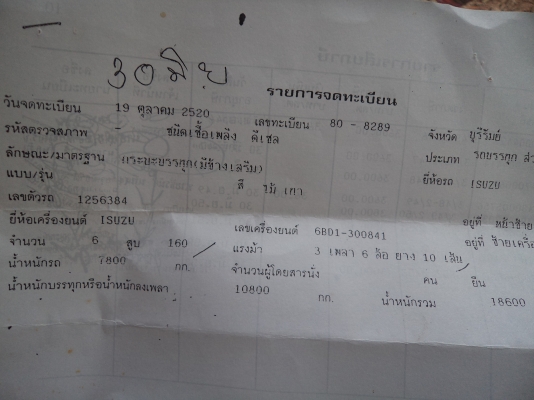 30 มิย
รายการจดทะเบียน
วันจดทะเบียน 19 ตุลาคม 2520 เลขทะเบียน 80 - 8289 จังหวัด บุรีรัมย์
รหัสตรวจสภาพ - ชนิดเชื้อเพลิง ดีเซล ประเภท รถบรรทุก ส่ว
ลักษณะ/มาตรฐาน กระบะบรรทุก(มีข้างเสริม) ยี่ห้อรถ ISUZU
แบบ/รุ่น สี
เลขตัวรถ 1256384 อยู่ที่ หน้าซ้าย
ยี่ห้อเครื่องยนต์ ISUZU เลขเครื่องยนต์ 6BD1-300841 อยู่ที่ ซ้ายเครื่
จำนวน 6 สูบ 160 แรงม้า 3 เพลา 6 ล้อ ยาง 10 เส้น
น้ำหนักรถ 7800 กก. จำนวนผู้โดยสารนั่ง คน ยืน
น้ำหนักบรรทุกหรือน้ำหนักลงเพลา 10800 กก. น้ำหนักรวม 18600